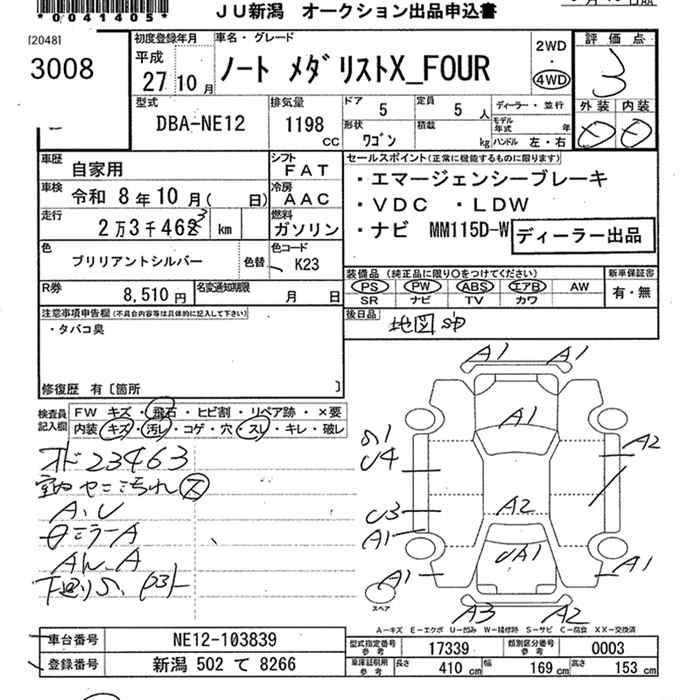 *0041405*
JU新潟 オークション出品申込書
[2048]
3008
初度登録年月
平成
27 10月
車名・グレード
ノート メダリストX_FOUR
2WD
4WD
評価点
3
外装 内装
型式
DBA-NE12
排気量
1198
CC
ドア 5
定員 5 人
形状 ワゴン
積載 kg
ディーラー・並行
モデル年式 年
ハンドル 左・右
車歴
自家用
シフト
FAT
車検
令和 8年10月( 日)
冷房
AAC
走行
2万3千463 km
燃料
ガソリン
色
ブリリアントシルバー
色替
色コード
K23
R券
8,510円
名変通知期限
月 日
セールスポイント(正常に機能するものに限ります)
・エマージェンシーブレーキ
・VDC ・LDW
・ナビ MM115D-W
ディーラー出品
装備品(純正品に限り○をつけてください)
PS PW ABS エアB AW
SR ナビ TV カワ
新車保証書
有・無
後日品
地図
注意事項申告欄(不具合内容等は具体的に記入して下さい)
・タバコ臭
修復歴 有〔箇所 〕
検査員記入欄
FW キズ・飛石・ヒビ割・リペア跡・×要
内装・キズ・汚レ・コゲ・穴・スレ・キレ・破レ
23463
A、U
ミラーA
A1 A1
A1
U4
A2
U3
A1
A2
A1
UA1
A1
A3 A2
スペア
A―キズ E―エクボ U―凹み W―補修跡 S―サビ C―腐食 XX―交換済
車台番号
NE12-103839
登録番号
新潟 502 て 8266
型式指定番号 参考
17339
類別区分番号 参考
0003
車庫証明用 参考
長さ 410 cm
幅 169 cm
高さ 153 cm